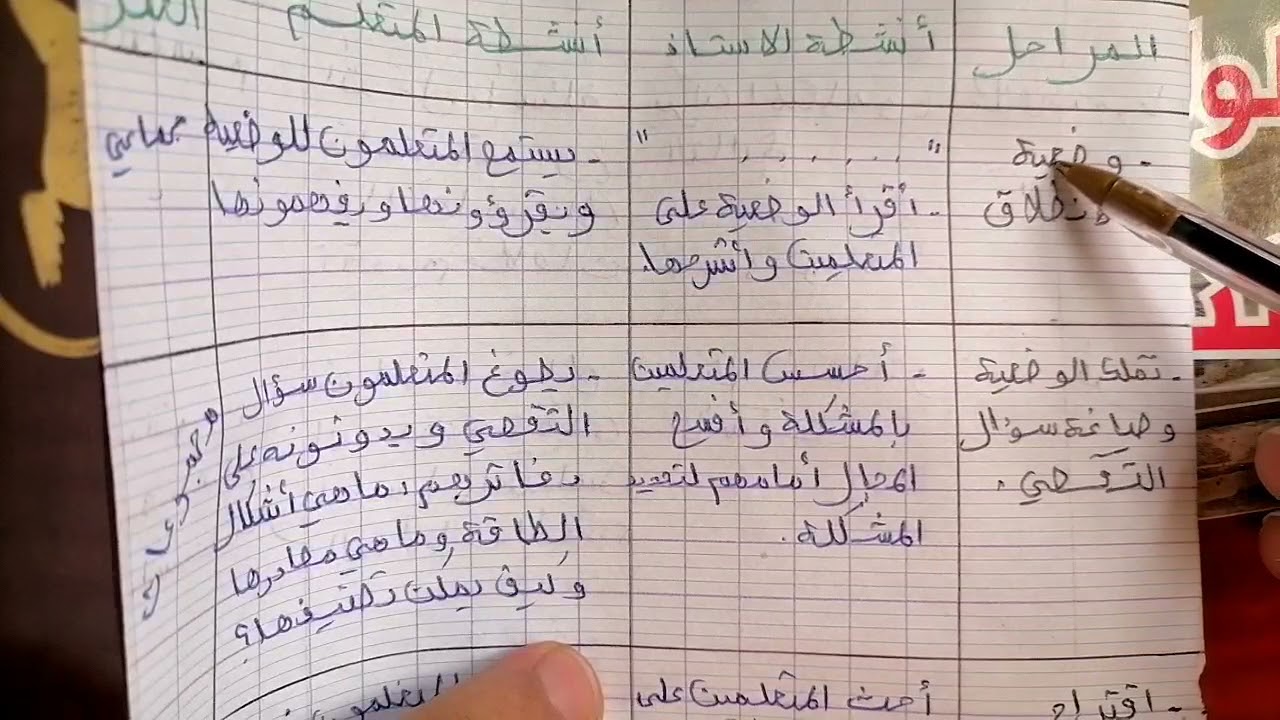 المراحل
أنشطة الاستاذ
أنشطة المتعلم
- وضعية
انطلاق
" . . . . . . "
- أقرأ الوضعية على
المتعلمين وأشرحها.
- يستمع المتعلمون للوضعية
ويقرؤونها ويفهمونها
جماعي
- تملك الوضعية
وصياغة سؤال
التقصي.
- أحسس المتعلمين
بالمشكلة وأفسح
المجال أمامهم لتحديد
المشكلة.
- يصوغ المتعلمون سؤال
التقصي ويدونونه على
دفاترهم، ما هي أشكال
الطاقة، وما هي مصادرها
وكيف يمكن تصنيفها؟
- اقتراح
أحث المتعلمين على
المتعلمون